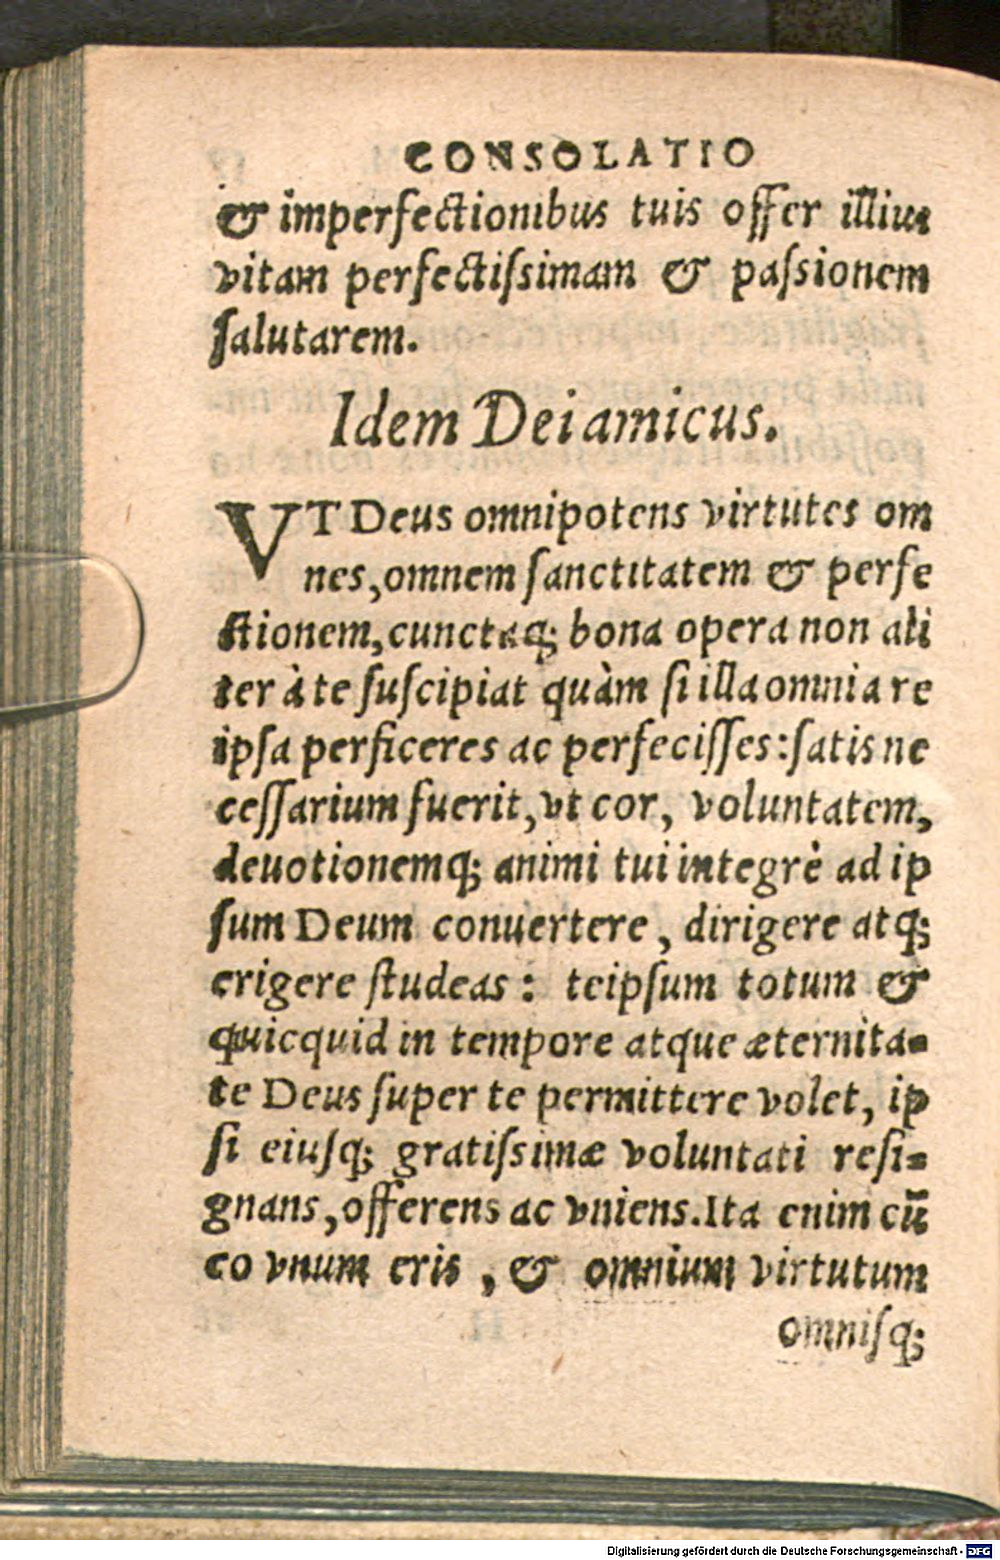 CONSOLATIO
& imperfectionibus tuis offer illius
vitam perfectiſsimam & paſsionem
ſalutarem.
Idem Dei amicus.
VT Deus omnipotens virtutes om
nes, omnem ſanctitatem & perfe
ctionem, cunctaq; bona opera non ali
ter à te ſuſcipiat quàm ſi illa omnia re
ipſa perficeres ac perfeciſſes: ſatis ne
ceſſarium fuerit, vt cor, voluntatem,
deuotionemq; animi tui integrè ad ip
ſum Deum conuertere, dirigere atq;
erigere ſtudeas: teipſum totum &
quicquid in tempore atque æternita-
te Deus ſuper te permittere volet, ip
ſi eiuſq; gratiſsimæ voluntati reſi-
gnans, offerens ac vniens. Ita enim cū
eo vnum eris, & omnium virtutum
omniſq;
Digitalisierung gefördert durch die Deutsche Forschungsgemeinschaft - DFG